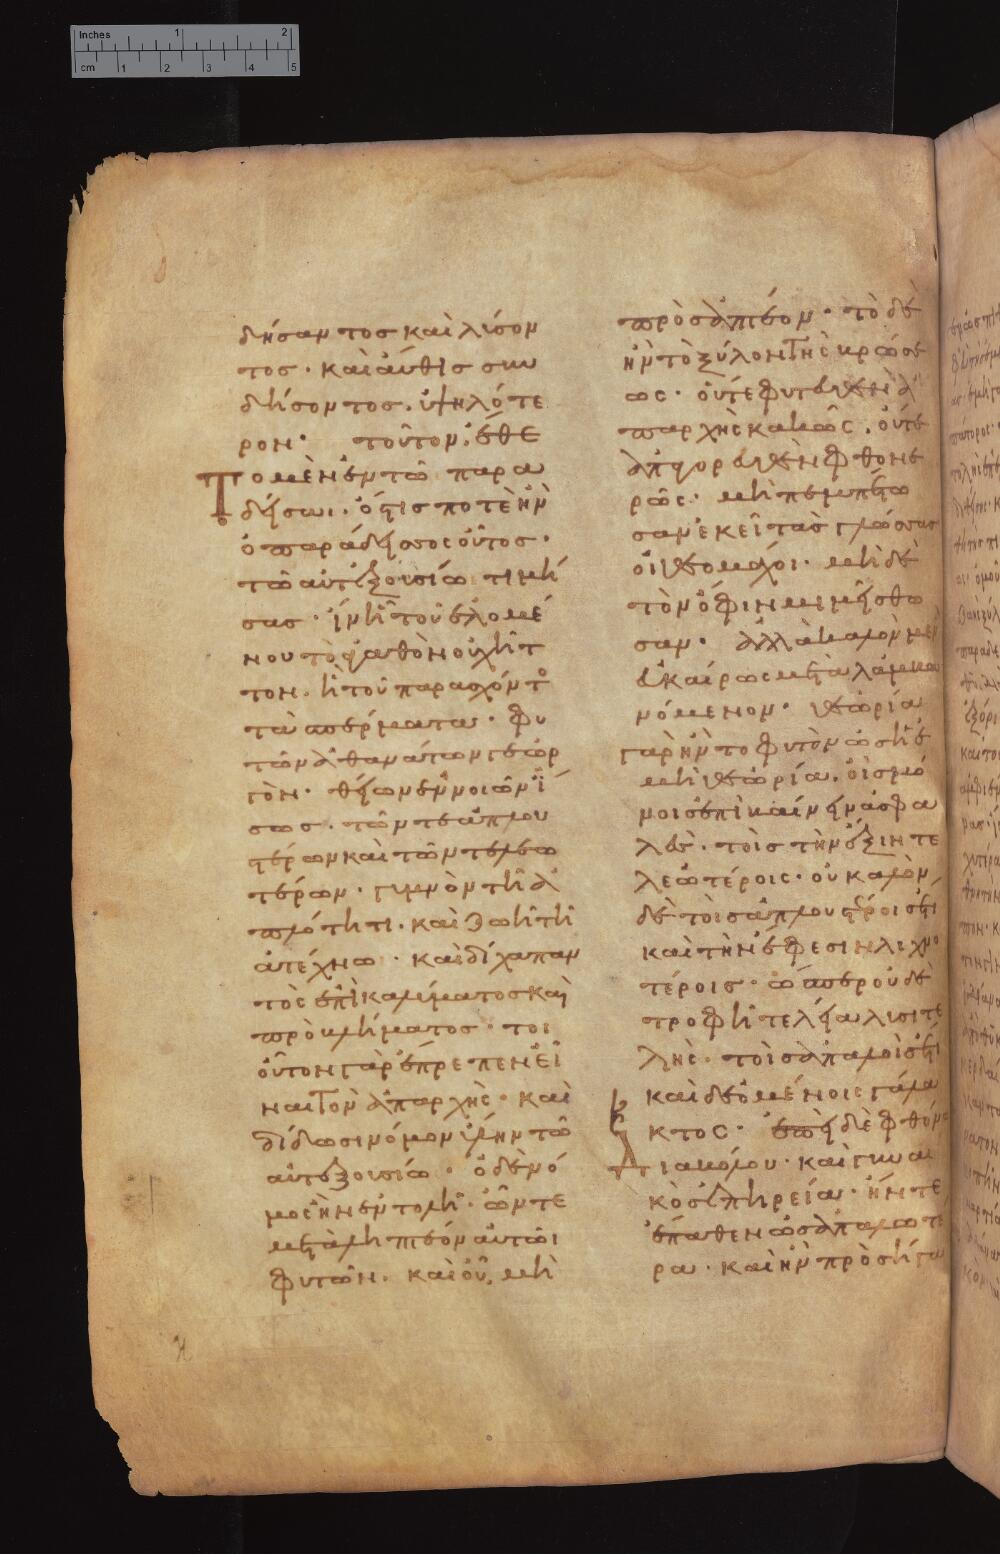 δήσαντος καὶ λύσον
τος · καὶ αὖθις συν
δήσοντος · ὑψηλότε
ρον · τοῦτον ἔθε
Το μὲν ἐν τῶ παρα
δείσωι · ὅστις ποτὲ ἦν
ὁ παράδεισος οὗτος ·
τῶ αὐτεξουσίω τιμή
σας · ἵν ἦ τοῦ ἑλομέ
νου τὸ ἀγαθὸν οὐχ ἧτ
τον · ἢ τοῦ παρασχόντος
τὰ σπέρματα · φυ
τῶν ἀθανάτων γεωρ
γὸν · θείων ἐννοιῶν ἴ
σως · τῶν τε ἁπλου
στέρων καὶ τῶν τελεω
τέρων · γυμνὸν τῆ ἁ
πλότητι · καὶ ζωῆ τῆ
ἀτέχνω · καὶ δίχα παν
τὸς ἐπικαλύμματος καὶ
προβλήματος · τοι
οῦτον γὰρ ἔπρεπεν εἶ
ναι τὸν ἀπαρχῆς · καὶ
δίδωσι νόμον ὕλην τῶ
αὐτεξουσίω · ὁ δὲ νό
μος ἦν ἐντολὴ · ὧν τε
μεταληπτέον αὐτῶι
φυτῶν · καὶ οὗ μὴ
προσαπτέον · τὸ δὲ
ἦν τὸ ξύλον τῆς γνώσε
ως · οὔτε φυτευθὲν ἀ
παρχῆς κακῶς · οὔτε
ἀπαγορευθὲν φθονε
ρῶς · μὴ πεμπέτω
σαν ἐκεῖ τὰς γλώσσας
οἱ θεομάχοι · μὴ δὲ
τὸν ὄφιν μιμείσθω
σαν · ἀλλὰ καλὸν μὲν
εὐκαίρως μεταλαμβα
νόμενον · θεωρία
γὰρ ἦν τὸ φυτὸν ὡς ἡ ἐ
μὴ θεωρία · οἷς μό
νοις ἐπιβαίνειν ἀσφα
λὲς · τοῖς τὴν ἕξιν τε
λεωτέροις · οὐ καλὸν
δὲ τοῖς ἁπλουστέροις ἔτι
καὶ τὴν ἔφεσιν λιχνο
τέροις · ὥσπερ οὐδὲ
τροφὴ τελεία λυσιτε
λὴς · τοῖς ἁπαλοῖς ἔτι
καὶ δεομένοις γάλα
κτος · ἐπεὶ δὲ φθόνω
Διαβόλου · καὶ γυναι
κὸς ἐπηρεία · ἥν τε
ἔπαθεν ὡς ἁπαλωτέ
ρα · καὶ ἣν προσήγα